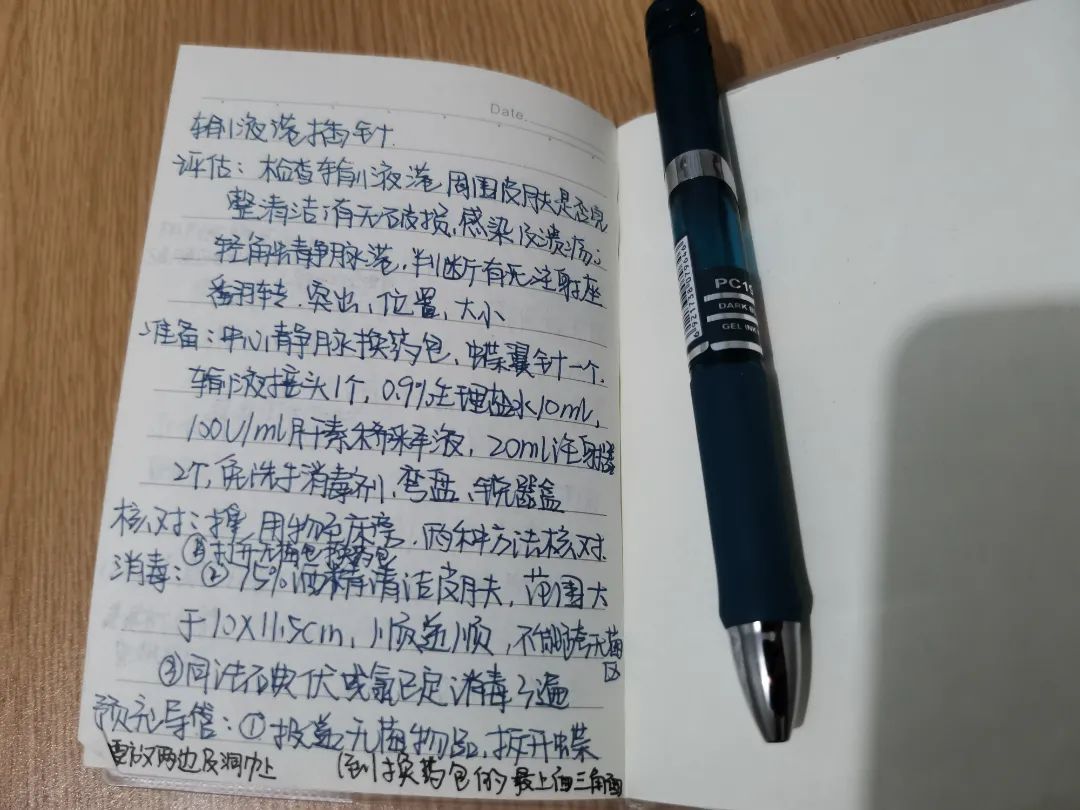 Date.
输液港插针.
评估: 检查输液港周围皮肤是否完
整清洁,有无破损、感染及溃疡;
轻触静脉港,判断有无注射座
翻转、突出,位置,大小
准备: 中心静脉换药包,蝶翼针一个.
输液接头1个, 0.9%生理盐水10ml,
100U/ml肝素稀释液, 20ml注射器
2个,免洗手消毒剂、弯盘、锐器盒
核对: 携用物至床旁,两种方法核对.
①打开无菌包换药包
消毒: ②75%酒精清洁皮肤,范围大
于10X11.5cm, 顺逆顺,不能跨无菌
区
③同法 碘伏或氯已定消毒3遍
预充导管: ①投递无菌物品,拆开蝶
要放两边及洞巾上
(到换药包的最上面三角面
PC1
DARK B
GEL INK